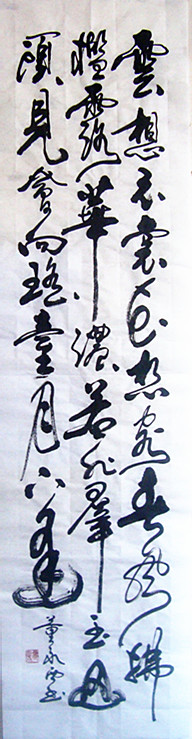 雲想衣裳花想容春風拂
檻露華濃若非群玉山
頭見會向瑤臺月下逢
董永西書